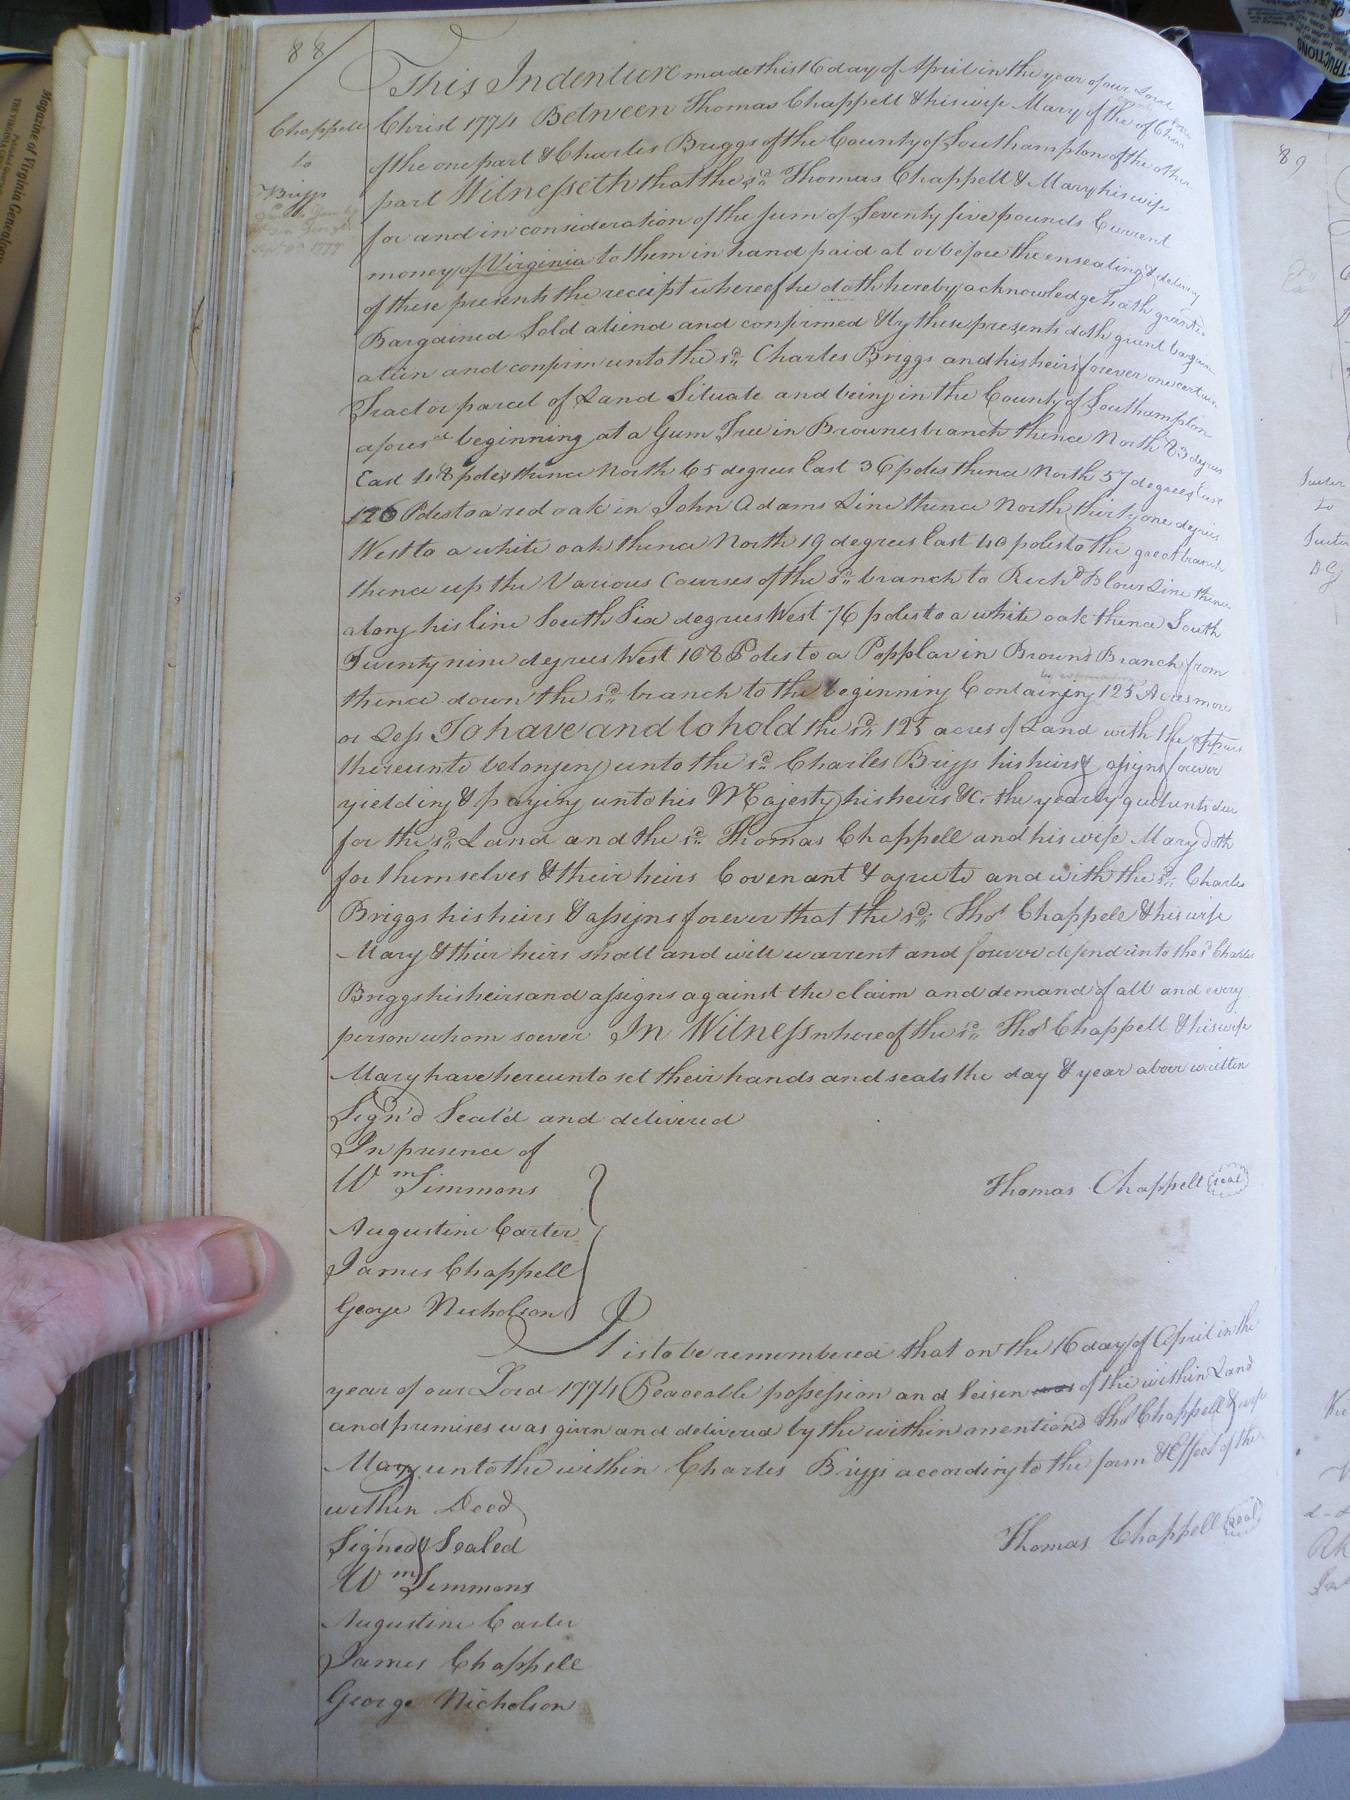 88
Chappell
to
Briggs
This Indenture made this 16 day of April in the year of our Lord
Christ 1774 Between Thomas Chappell & his wife Mary of the
of the one part & Charles Briggs of the County of Southampton of the other
part Witnesseth that the sd. Thomas Chappell & Mary his wife
for and in consideration of the sum of Seventy five pounds Current
money of Virginia to them in hand paid at or before the ensealing & delivery
of these presents the receipt whereof he doth hereby acknowledge hath granted
Bargained Sold aliend and confirmed & by these presents doth grant bargain
alien and confirm unto the sd. Charles Briggs and his heirs forever one certain
Tract or parcel of Land Situate and being in the County of Southampton
afores.d beginning at a Gum Tree in Brownes branch thence North 83 degrees
East 118 poles thence North 65 degrees East 36 poles thence North 57 degrees East
126 Poles to a red oak in John Adams Line thence North thirty one degrees
West to a white oak thence North 19 degrees East 40 poles to the great branch
thence up the Various Courses of the sd. branch to Richd. Blows Line thence
along his line South Six degrees West 76 poles to a white oak thence South
Twenty nine degrees West 108 Poles to a Popplar in Browns Branch from
thence down the sd. branch to the beginning Containing by estimation 125 Acres more
or Less To have and to hold the sd. 125 acres of Land with the
thereunto belonging unto the sd. Charles Briggs his heirs & assigns forever
yielding & paying unto his Majesty his heirs &c. the yearly quitrents due
for the sd. Land and the sd. Thomas Chappell and his wife Mary doth
for themselves & their heirs Covenant & agree to and with the sd. Charles
Briggs his heirs & assigns forever that the sd. Thos. Chappell & his wife
Mary & their heirs shall and will warrent and forever defend unto the sd. Charles
Briggs his heirs and assigns against the claim and demand of all and every
person whom soever In Witness whereof the sd. Thos. Chappell & his wife
Mary have hereunto set their hands and seals the day & year above written
Sign'd Seal'd and delivered
In presence of
Wm Simmons
Thomas Chappell seal
Augustine Carter
James Chappell
George Nicholson
It is to be remembered that on the 16 day of April in the
year of our Lord 1774 Peaceable possession and Seisen was of the within Land
and premises was given and delivered by the within mentiond Thos. Chappell & wife
Mary unto the within Charles Briggs according to the form & Effect of the
within Deed
Signed & Sealed
Thomas Chappell seal
Wm Simmons
Augustine Carter
James Chappell
George Nicholson
Magazine of Virginia Genealogy
89
to